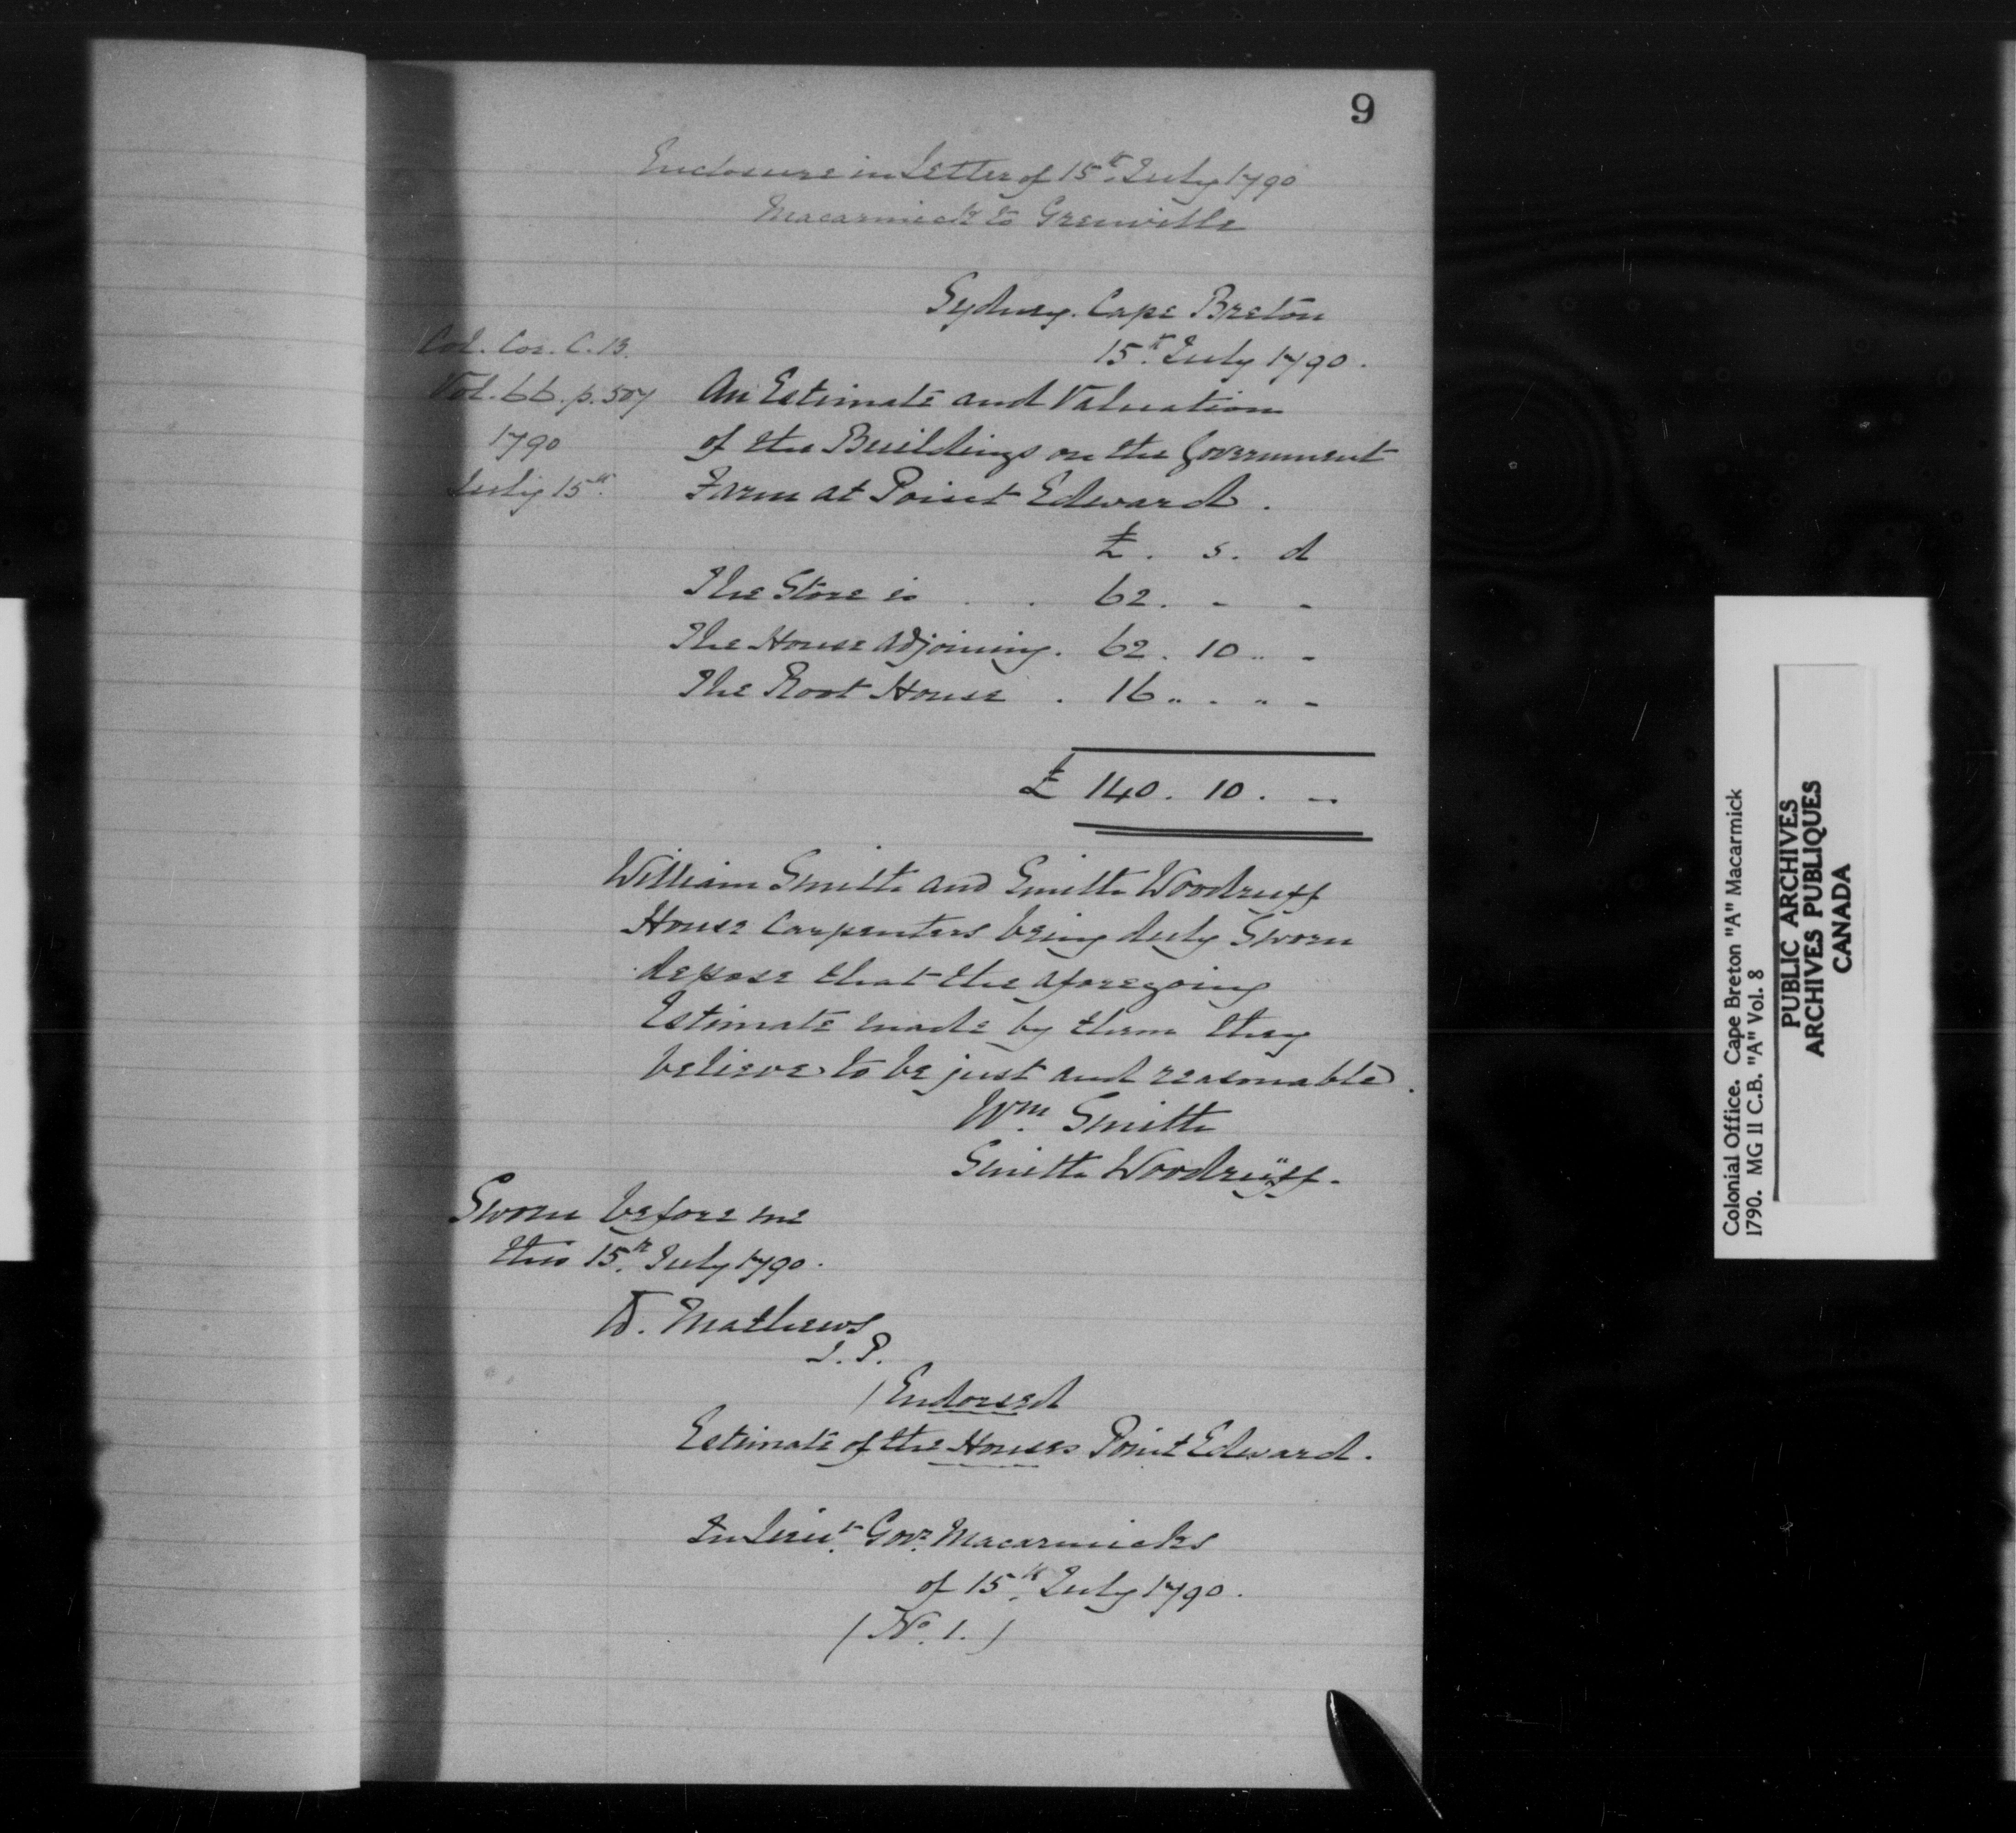 9
Enclosure in Letter of 15th July 1790
Macarmick to Grenville
Sydney. Cape Breton
15th July 1790.
Col. Cor. C.B.
Vol. 66. p. 507
1790
July 15th
An Estimate and Valuation
of the Buildings on the Government
Farm at Point Edward.
£. s. d
The Store is . . 62. - -
The House adjoining. 62. 10 .. -
The Root House . 16 .. . .. -
£ 140. 10. --
William Smith and Smith Woodruff
House Carpenters being duly Sworn
depose that the aforegoing
Estimate made by them they
believe to be just and reasonable.
Wm. Smith
Smith Woodruff.
Sworn before me
this 15th July 1790.
D. Mathews
J. P.
/ Endorsed
Estimate of the Houses Point Edward.
In Lieut. Govr. Macarmicks
of 15th July 1790.
(No. 1.)
Colonial Office. Cape Breton "A" Macarmick
1790. MG 11 C.B. "A" Vol. 8
PUBLIC ARCHIVES
ARCHIVES PUBLIQUES
CANADA